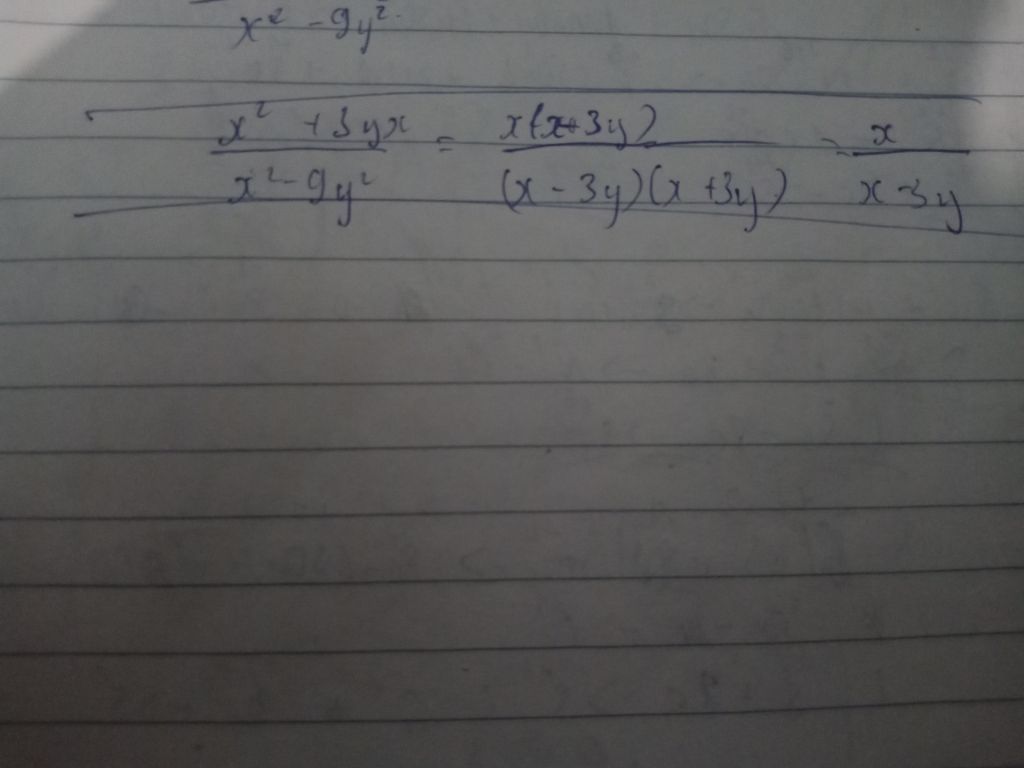 x² - 9y²
x² + 3yx / x² - 9y² = x(x+3y) / (x - 3y)(x + 3y) = x / x - 3y